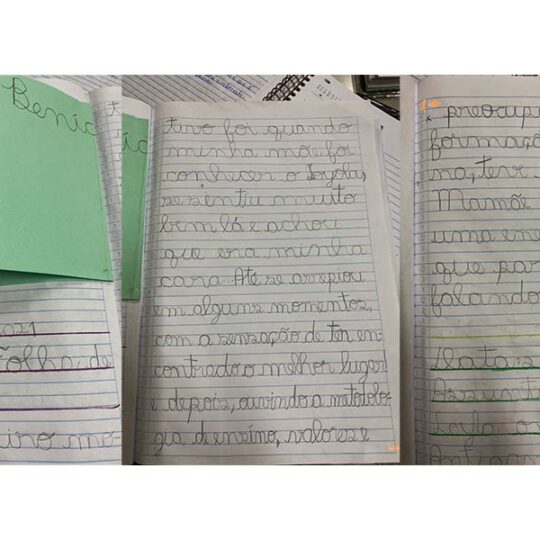 Benic
021
Folha de
ino mo-
tivo foi quando
minha mãe foi
conhecer o Loyola,
se sentiu muito
bem lá e achou
que era minha
cara. Até se arrepiou
em alguns momentos,
com a sensação de ter en-
contrado o melhor lugar!
e depois, ouvindo a metodolo-
gia de ensino, valores e
preocup
formaçã
na, teve
Mamãe
uma ene
que par
falando
Assunt